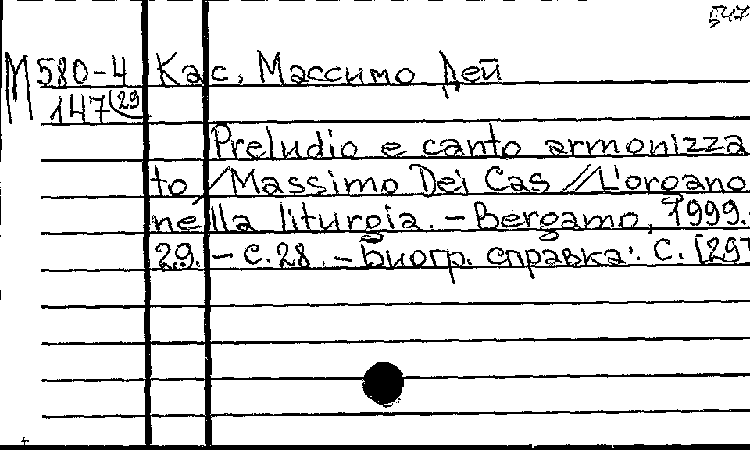 547
М 580-4 Кас, Массимо Дей
147(29
Preludio e canto armonizza
to / Massimo Dei Cas // L'organo
nella liturgia. - Bergamo, 1999.
29. - С. 28. - Биогр. справка: С. [29